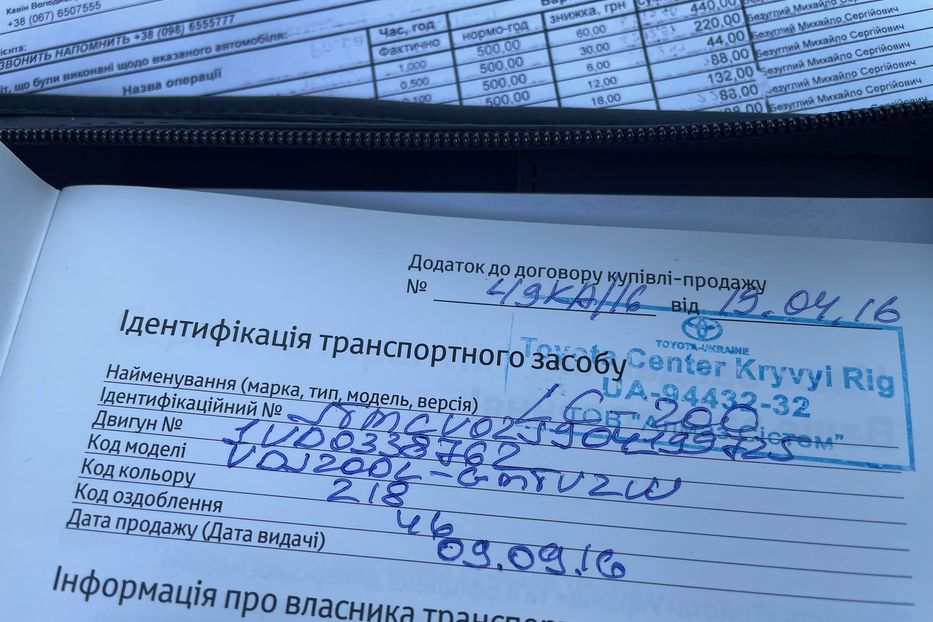 Кавін Волод
+38 (067) 6507555
ієнта:
ЗВОНИТЬ НАПОМНИТЬ +38 (098) 6555777
іт, що були виконані щодо вказаного автомобіля:
Назва операції
Час, год нормо-год знижка, грн
Фактично 500,00 60,00 440,00
1,000 500,00 30,00 220,00 Безуглий Михайло Сергійович
0,500 500,00 6,00 44,00 Безуглий Михайло Сергійович
0,100 500,00 12,00 88,00 Безуглий Михайло Сергійович
18,00 132,00 Безуглий Михайло Сергійович
88,00 Безуглий Михайло Сергійович
Додаток до договору купівлі-продажу
№ 49КА/16 від 19.04.16
TOYOTA-UKRAINE
Toyota Center Kryvyi Rig
UA-94432-32
Ідентифікація транспортного засобу
Найменування (марка, тип, модель, версія) LC-200
Ідентифікаційний № JTMCV02J904199725
Двигун № 1VD0338762
Код моделі VDJ200L-GMTVZW
Код кольору 218
Код оздоблення 46
Дата продажу (Дата видачі) 09.09.16
Інформація про власника транспорт